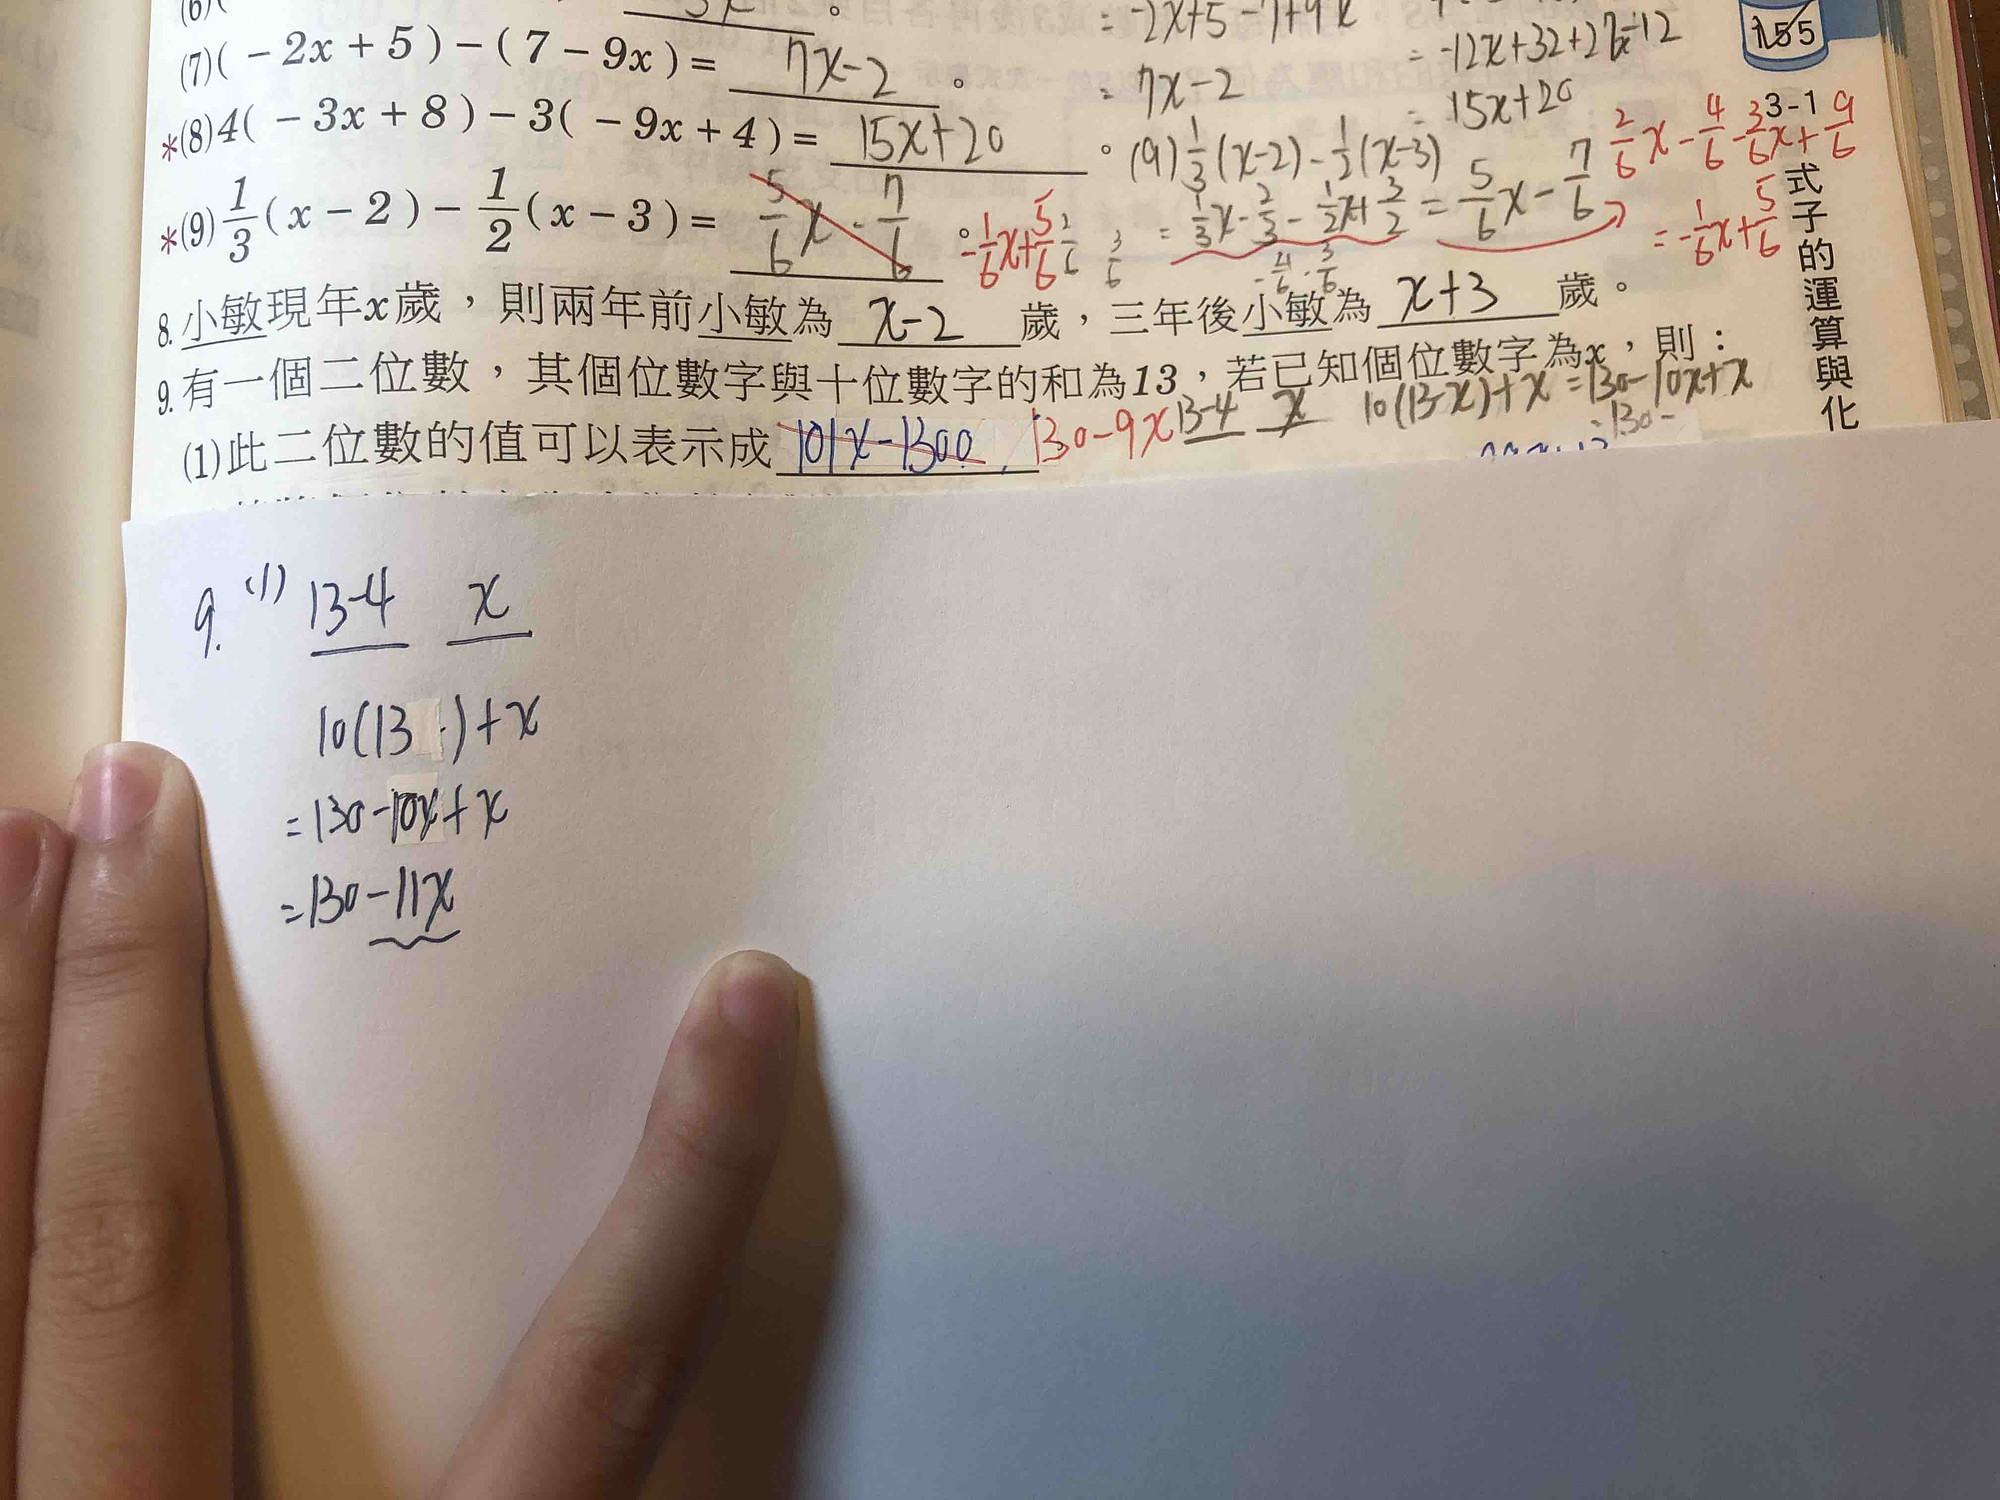 (6)(
= -2x+5-7+9x
(7)( －2x＋5 )－( 7－9x )＝ 7x-2 。
= 7x-2
= -12x+32+27x-12
= 15x+20
155
3-1
式子的運算與化
*(8)4( －3x＋8 )－3( －9x＋4 )＝ 15x+20 。
(9) 1/3(x-2)-1/2(x-3)
= 1/3x-2/3-1/2x+3/2 = 5/6x-7/6
2/6x-4/6-3/6x+9/6
= -1/6x+5/6
*(9)1/3( x－2 )－1/2( x－3 )＝ 5/6x-7/6 。 = -1/6x+5/6
2/6 3/6
8.小敏現年x歲，則兩年前小敏為 x-2 歲，三年後小敏為 x+3 歲。
9.有一個二位數，其個位數字與十位數字的和為13，若已知個位數字為x，則：
13-4 x 10(13-x)+x =130-10x+x
=130-
(1)此二位數的值可以表示成 101x-1300 130-9x
9. (1) 13-4 x
10(13 -)+x
=130-10x+x
=130-11x